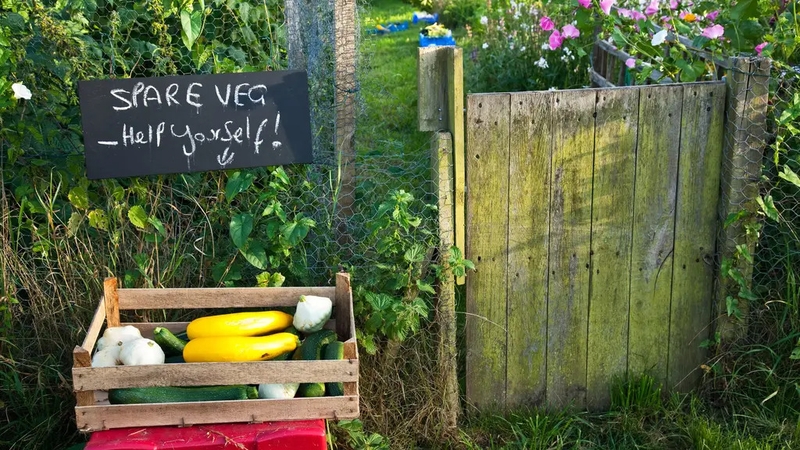 SPARE VEG
- Help Yourself! ↓